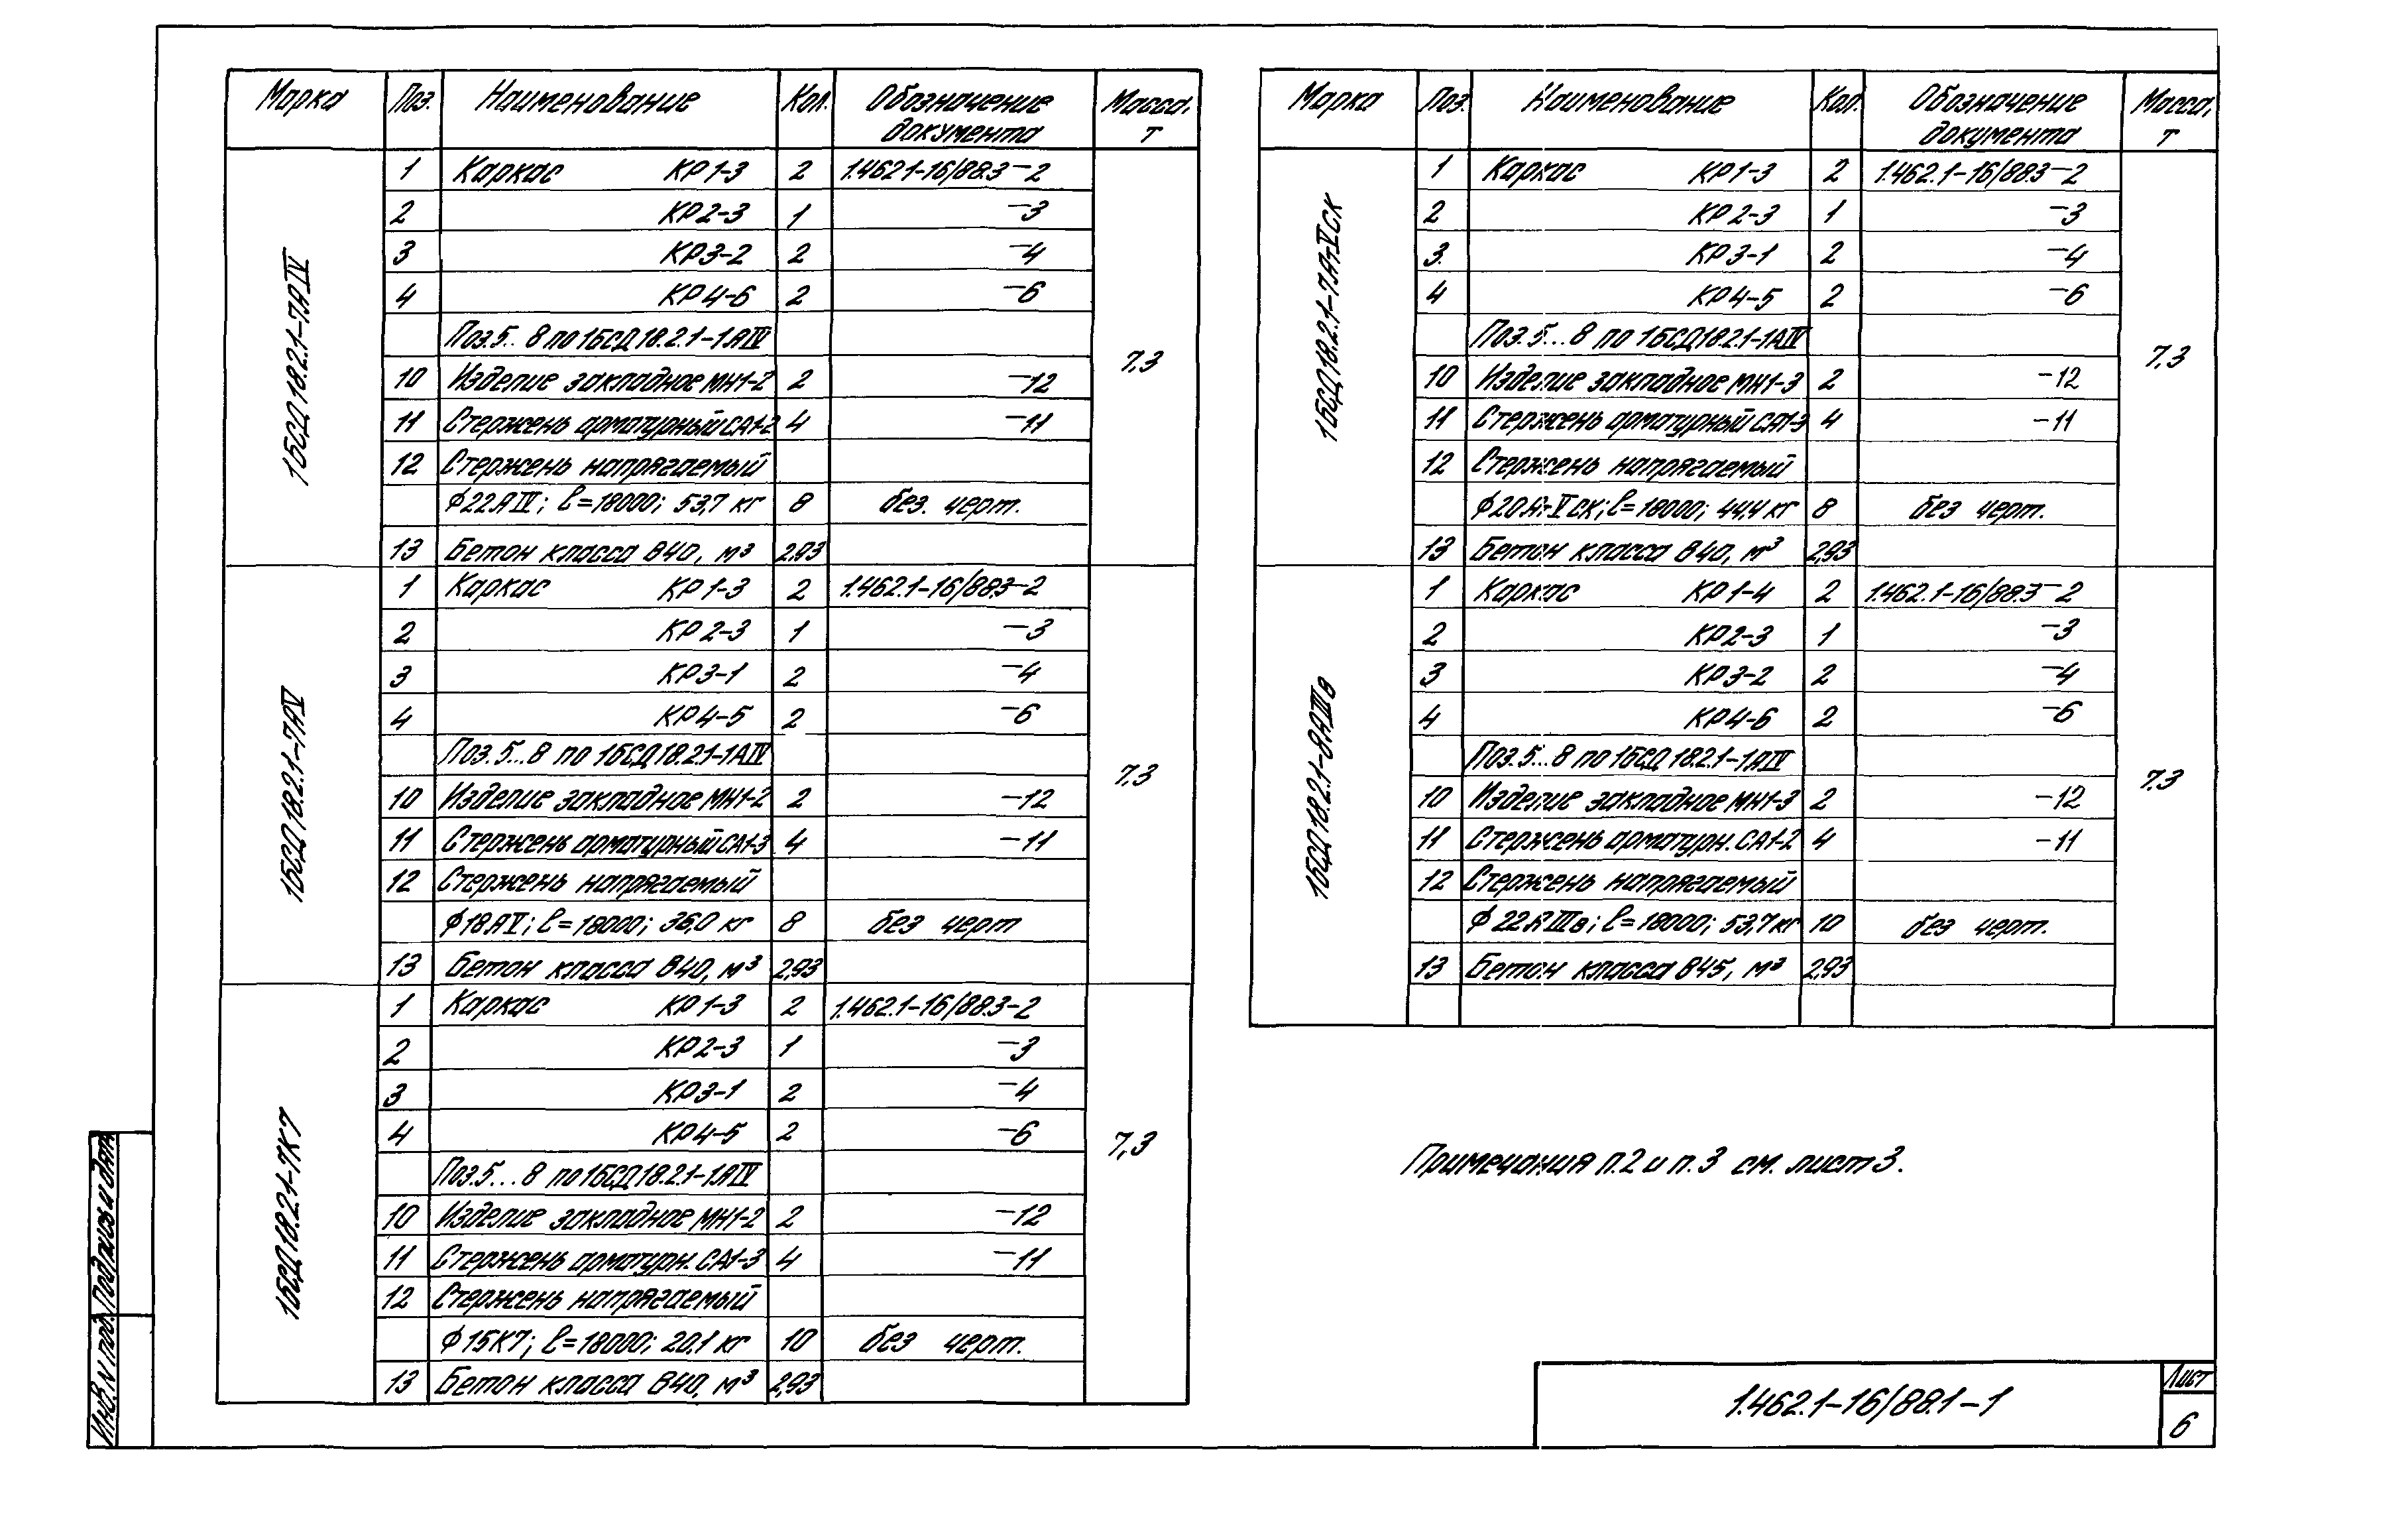 Марка Поз. Наименование Кол. Обозначение документа Масса, т
1БСД18.2.1-7АIV
1 Каркас КР1-3 2 1.462.1-16/88.3-2
2 КР2-3 1 -3
3 КР3-2 2 -4
4 КР4-6 2 -6
Поз.5...8 по 1БСД18.2.1-1АIV
7,3
10 Изделие закладное МН1-2 2 -12
11 Стержень арматурный СА1-2 4 -11
12 Стержень напрягаемый
ф22АIV; ℓ=18000; 53,7 кг 8 без. черт.
13 Бетон класса В40, м³ 2,93
1БСД18.2.1-7АV
1 Каркас КР1-3 2 1.462.1-16/88.3-2
2 КР2-3 1 -3
3 КР3-1 2 -4
4 КР4-5 2 -6
Поз.5...8 по 1БСД18.2.1-1АIV
7,3
10 Изделие закладное МН1-2 2 -12
11 Стержень арматурный СА1-3 4 -11
12 Стержень напрягаемый
ф18АV; ℓ=18000; 36,0 кг 8 без черт
13 Бетон класса В40, м³ 2,93
1БСД18.2.1-7К7
1 Каркас КР1-3 2 1.462.1-16/88.3-2
2 КР2-3 1 -3
3 КР3-1 2 -4
4 КР4-5 2 -6
7,3
Поз.5...8 по 1БСД18.2.1-1АIV
10 Изделие закладное МН1-2 2 -12
11 Стержень арматурн. СА1-3 4 -11
12 Стержень напрягаемый
ф15К7; ℓ=18000; 20,1 кг 10 без черт.
13 Бетон класса В40, м³ 2,93
Марка Поз. Наименование Кол. Обозначение документа Масса, т
1БСД18.2.1-7АтVСК
1 Каркас КР1-3 2 1.462.1-16/88.3-2
2 КР2-3 1 -3
3. КР3-1 2 -4
4 КР4-5 2 -6
Поз.5...8 по 1БСД18.2.1-1АIV
7,3
10 Изделие закладное МН1-3 2 -12
11 Стержень арматурный СА1-3 4 -11
12 Стержень напрягаемый
ф20Ат-VСК; ℓ=18000; 44,4 кг 8 без черт.
13 Бетон класса В40, м³ 2,93
1БСД18.2.1-8АIIIв
1 Каркас КР1-4 2 1.462.1-16/88.3-2
2 КР2-3 1 -3
3 КР3-2 2 -4
4 КР4-6 2 -6
Поз.5...8 по 1БСД18.2.1-1АIV
7,3
10 Изделие закладное МН1-3 2 -12
11 Стержень арматурн. СА1-2 4 -11
12 Стержень напрягаемый
ф22АIIIв; ℓ=18000; 53,7 кг 10 без черт.
13 Бетон класса В45, м³ 2,93
Примечания п.2 и п.3 см. лист 3.
Инв.N подл. Подпись и дата
1.462.1-16/88.1-1
Лист
6